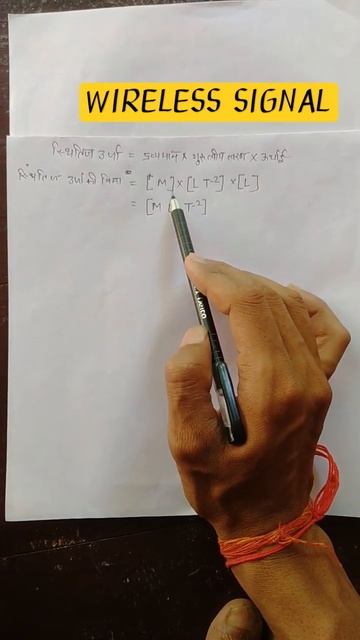 WIRELESS SIGNAL
स्थितिज उर्जा = द्रव्यमान × गुरुत्वीय त्वरण × ऊंचाई
स्थितिज उर्जा की विमा = [M] × [L T-2] × [L]
= [M T-2]